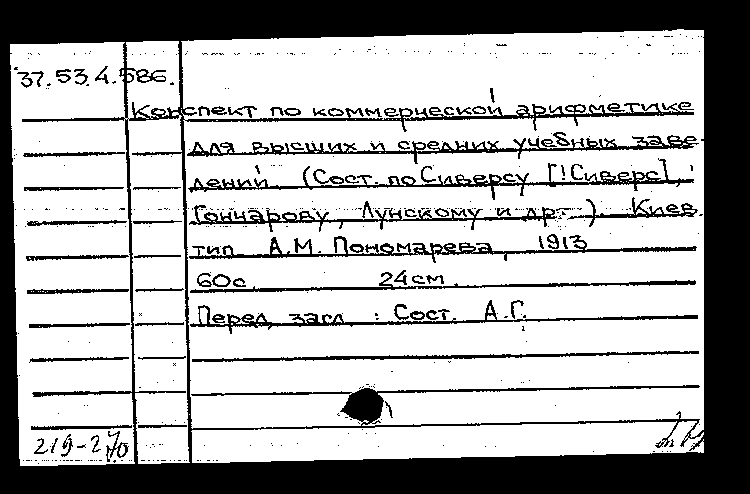 37.53.4.586.
Конспект по коммерческой арифметике
для высших и средних учебных заве-
дений. (Сост. по Сиверсу [!Сиверс],
Гончарову, Лунскому и др.). Киев.
тип. А.М. Пономарева, 1913
60с. 24см.
Перед загл.: Сост. А.Г.
219-270